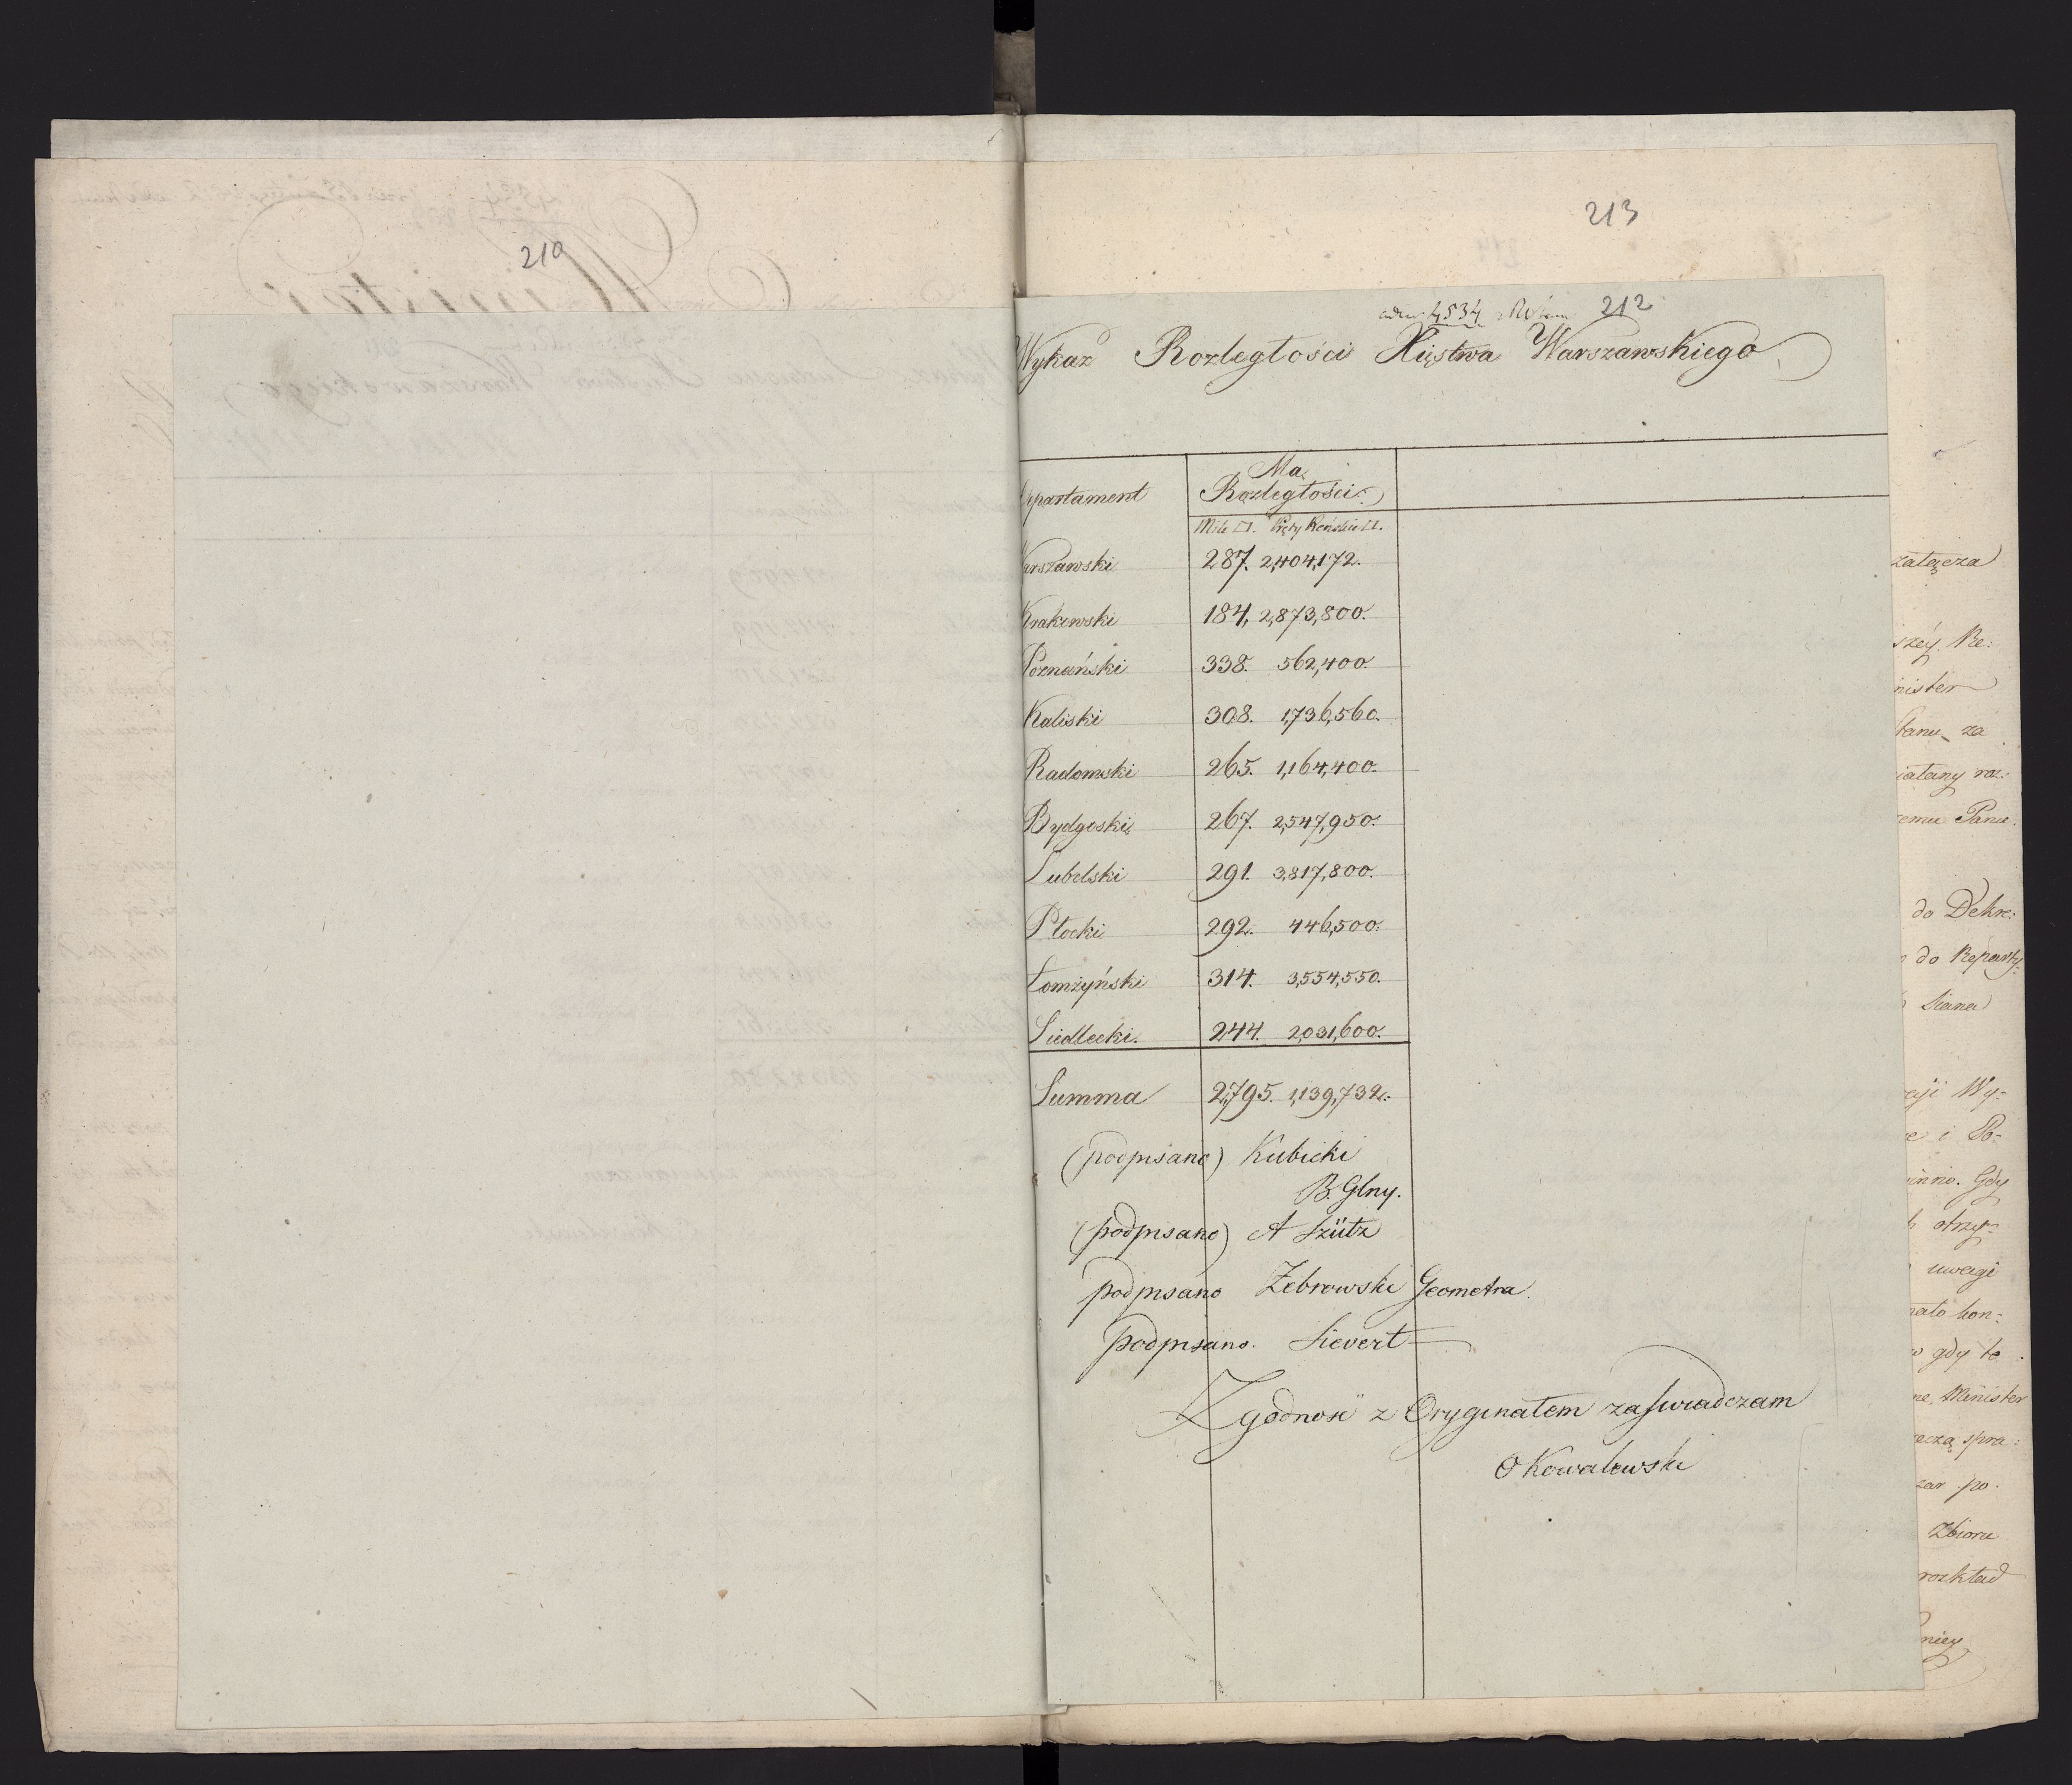 210
213
4534
212
Wykaz Rozległości Xięstwa Warszawskiego
epartament
Ma
Rozległości
Mile □. Pręty Reńskie □.
arszawski 287. 2,404,172.
Krakowski 184, 2,873,800.
Poznański 338. 562,400.
Kaliski 308. 1,736,560.
Radomski 265. 1,164,400.
Bydgoski 267. 2,547,950.
Lubelski 291. 3,817,800.
Płocki 292. 446,500.
Łomżyński 314. 3,554,550.
Siedlecki. 244. 2,031,600.
Summa 2,795. 1,139,732.
(podpisano) Kubicki
B. Glny.
(podpisano) A Szütz
podpisano Żebrowski Geometra.
podpisano. Sievert
Zgodność z Oryginałem zaswiadczam
O Kowalewski
załącza
széy Re:
nister
tanu za
iałany roz:
emu Panu
do Dekre:
do Reparty:
Siana
cyi Wy:
e i Po:
inno. Gdy
otrzy:
uwagi
nato kon:
gdy te
ne, Minister
eczą spra:
zar po.
Zbioru
rozkład
niey